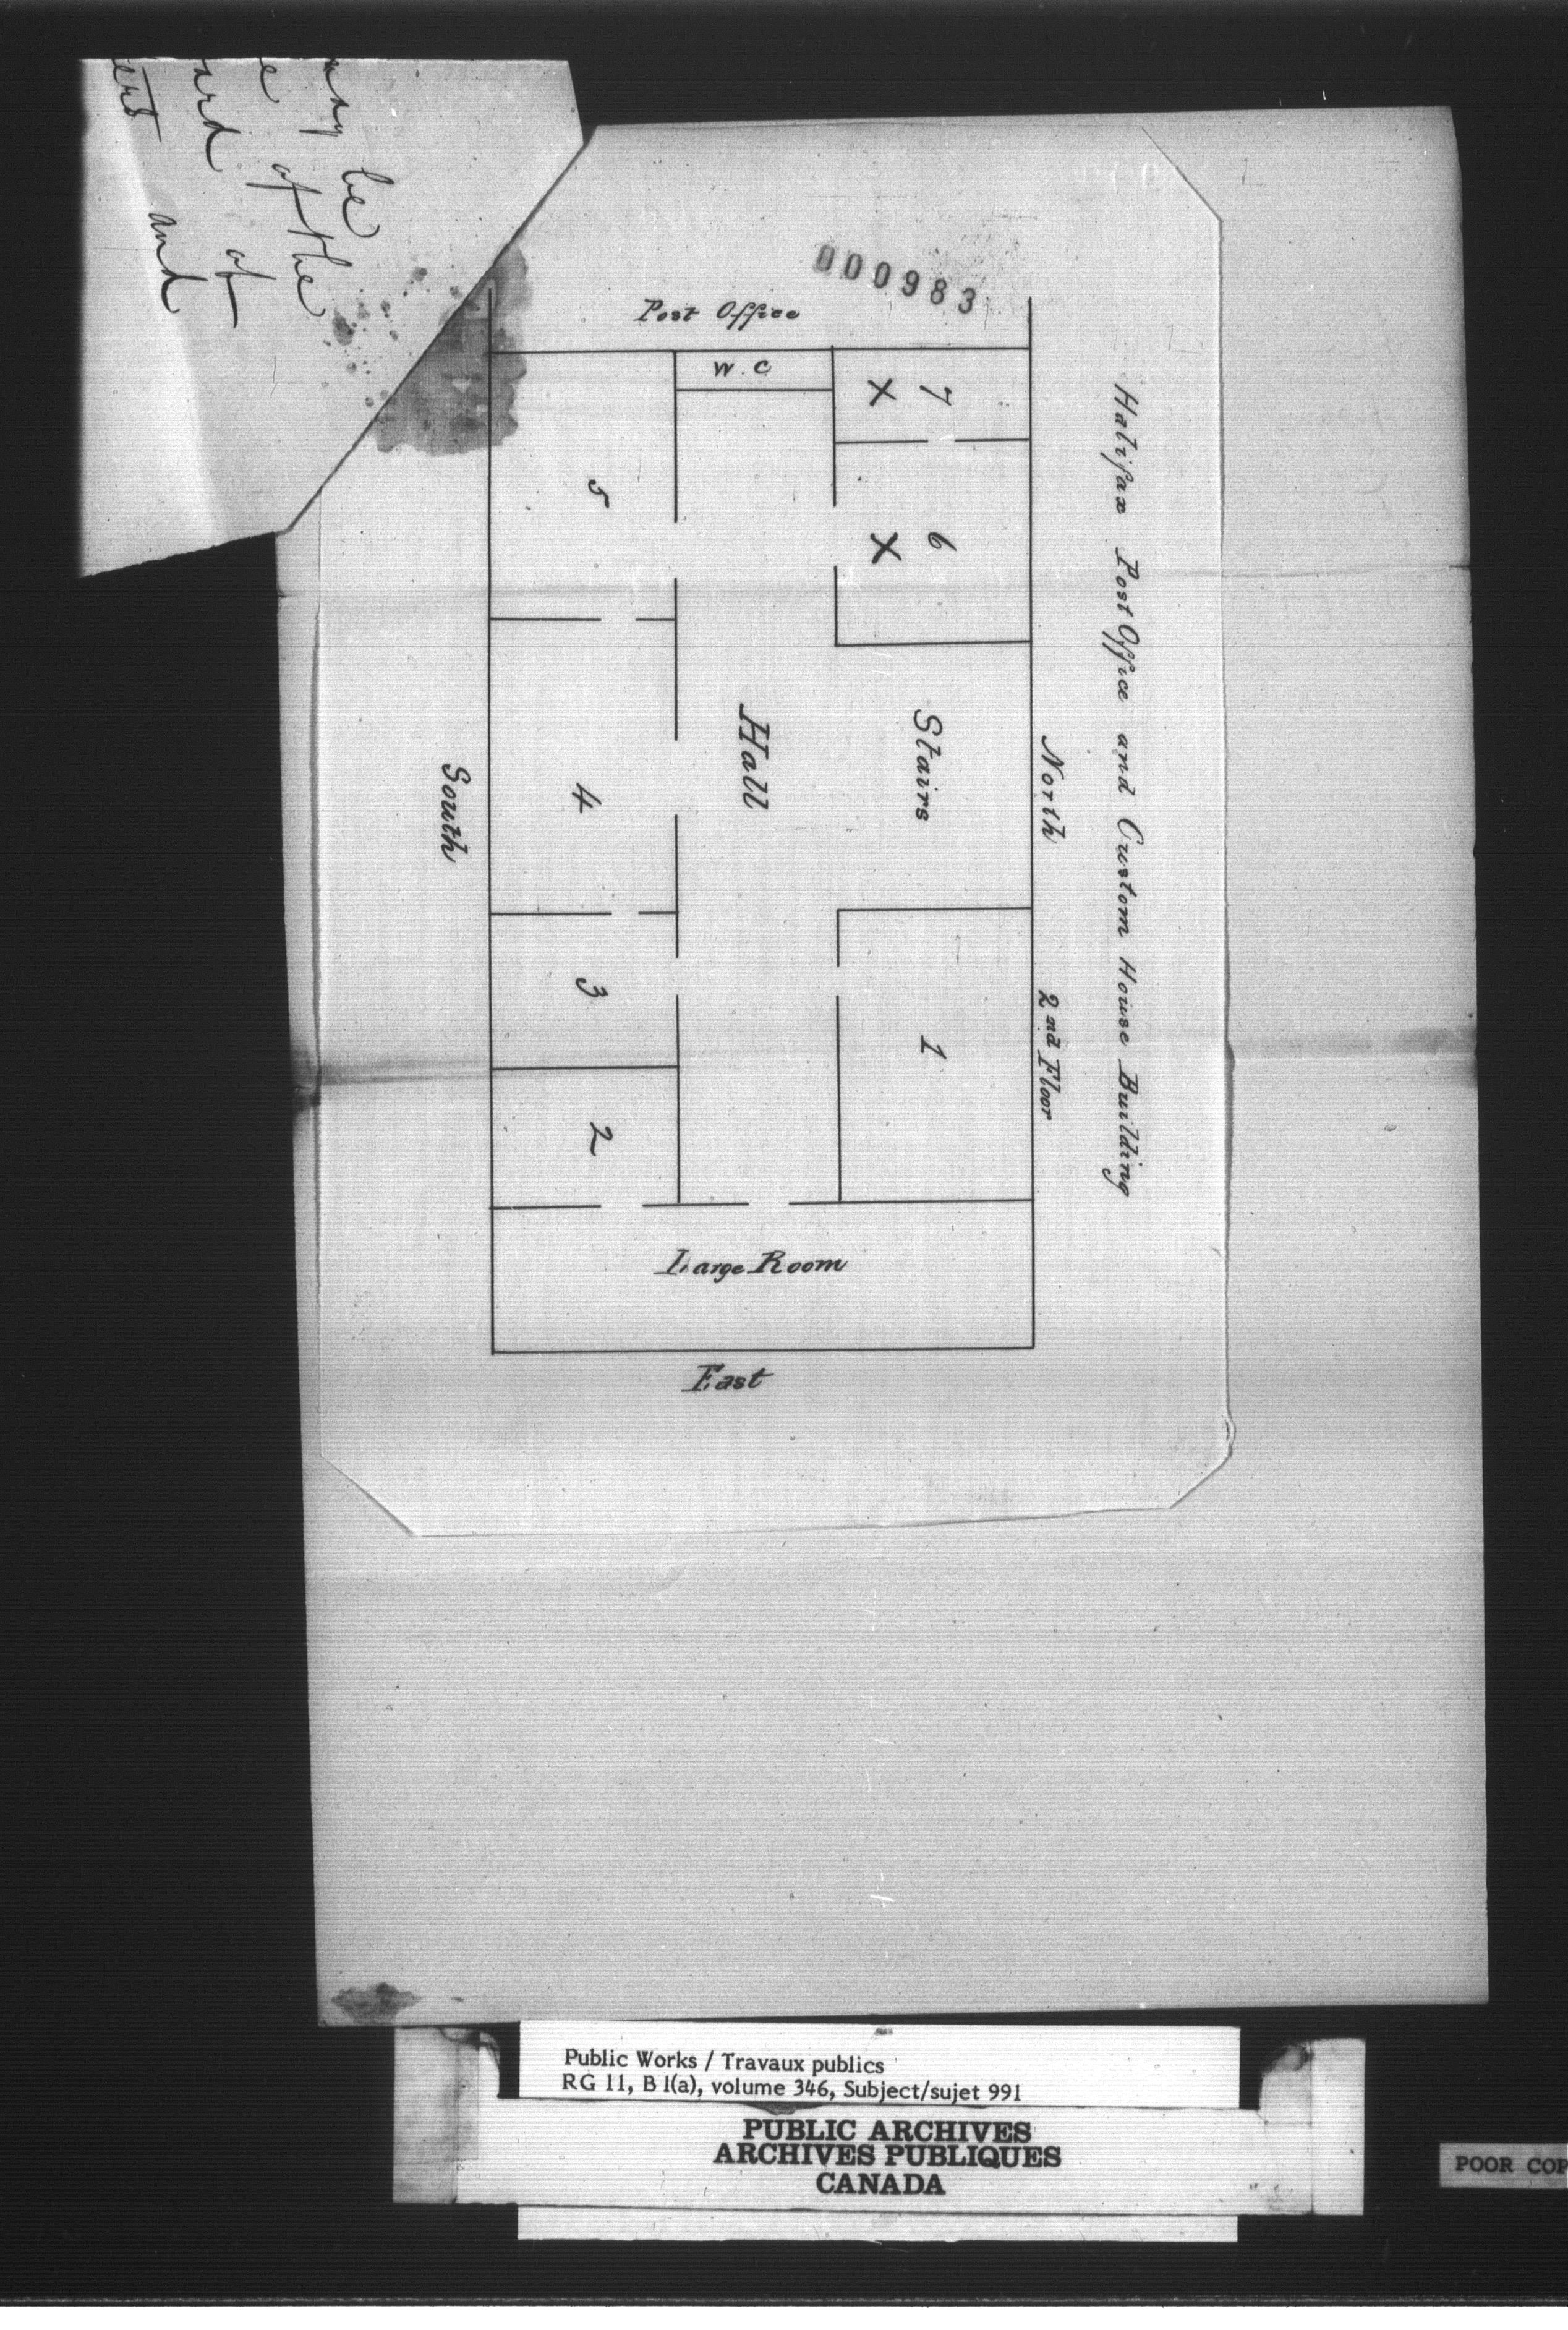 be
of the
of
and
000983
Halifax Post Office and Custom House Building
North
2nd Floor
Post Office
W.C
7
X
6
X
5
Stairs
Hall
4
South
3
1
2
Large Room
East
Public Works / Travaux publics
RG 11, B 1(a), volume 346, Subject/sujet 991
PUBLIC ARCHIVES
ARCHIVES PUBLIQUES
CANADA
POOR COP